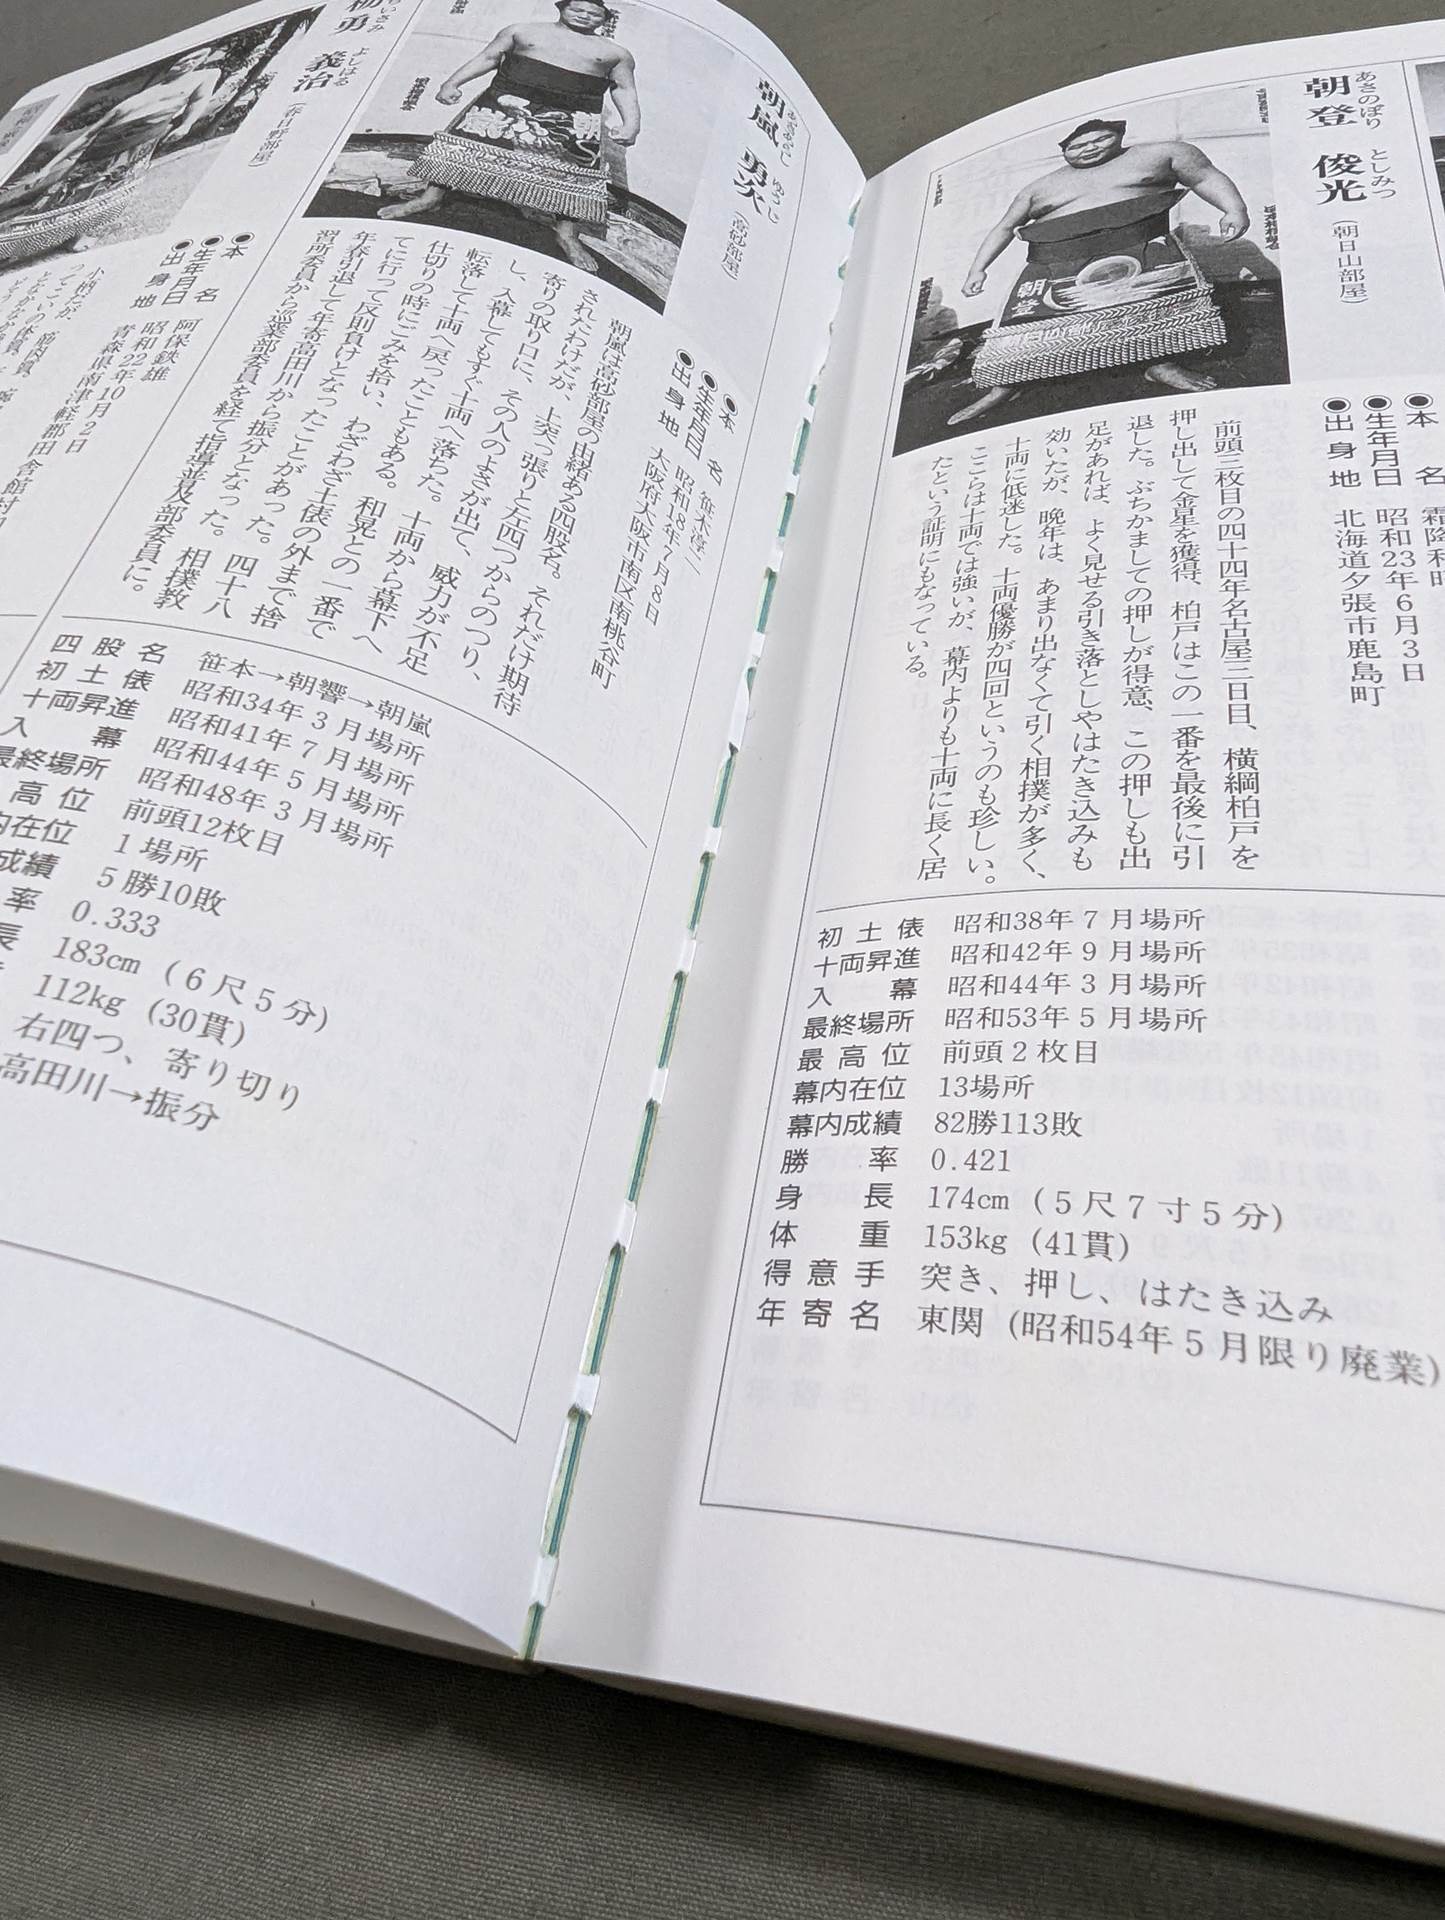 朝登 俊光
あさのぼり としみつ
(朝日山部屋)
●本名 霜降和昭
●生年月日 昭和23年6月3日
●出身地 北海道夕張市鹿島町
前頭三枚目の四十四年名古屋三日目、横綱柏戸を
押し出して金星を獲得、柏戸はこの一番を最後に引
退した。ぶちかましての押しが得意、この押しも出
足があれば、よく見せる引き落としやはたき込みも
効いたが、晩年は、あまり出なくて引く相撲が多く、
十両に低迷した。十両優勝が四回というのも珍しい。
ここらは十両では強いが、幕内よりも十両に長く居
たという証明にもなっている。
初土俵 昭和38年7月場所
十両昇進 昭和42年9月場所
入幕 昭和44年3月場所
最終場所 昭和53年5月場所
最高位 前頭2枚目
幕内在位 13場所
幕内成績 82勝113敗
勝率 0.421
身長 174cm(5尺7寸5分)
体重 153kg(41貫)
得意手 突き、押し、はたき込み
年寄名 東関(昭和54年5月限り廃業)
朝嵐 勇次
あさあらし ゆうじ
(高砂部屋)
●本名 笹本淳一
●生年月日 昭和18年7月8日
●出身地 大阪府大阪市南区南桃谷町
朝嵐は高砂部屋の由緒ある四股名。それだけ期待
されたわけだが、上突っ張りと左四つからのつり、
寄りの取り口に、その人のよさが出て、威力が不足
し、入幕してもすぐ十両へ落ちた。十両から幕下へ
転落して十両へ戻ったこともある。和晃との一番で
仕切りの時にごみを拾い、わざわざ土俵の外まで捨
てに行って反則負けとなったことがあった。四十八
年春引退して年寄高田川から振分となった。相撲教
習所委員から巡業部委員を経て指導普及部委員に。
四股名 笹本→朝響→朝嵐
初土俵 昭和34年3月場所
十両昇進 昭和41年7月場所
入幕 昭和44年5月場所
最終場所 昭和48年3月場所
高位 前頭12枚目
内在位 1場所
成績 5勝10敗
率 0.333
長 183cm(6尺5分)
112kg(30貫)
右四つ、寄り切り
高田川→振分
栃勇 義治
よしはる
(春日野部屋)
●本名 阿保鉄雄
●生年月日 昭和22年10月2日
●出身地 青森県南津軽郡田舎館村
小柄だが、筋肉質、